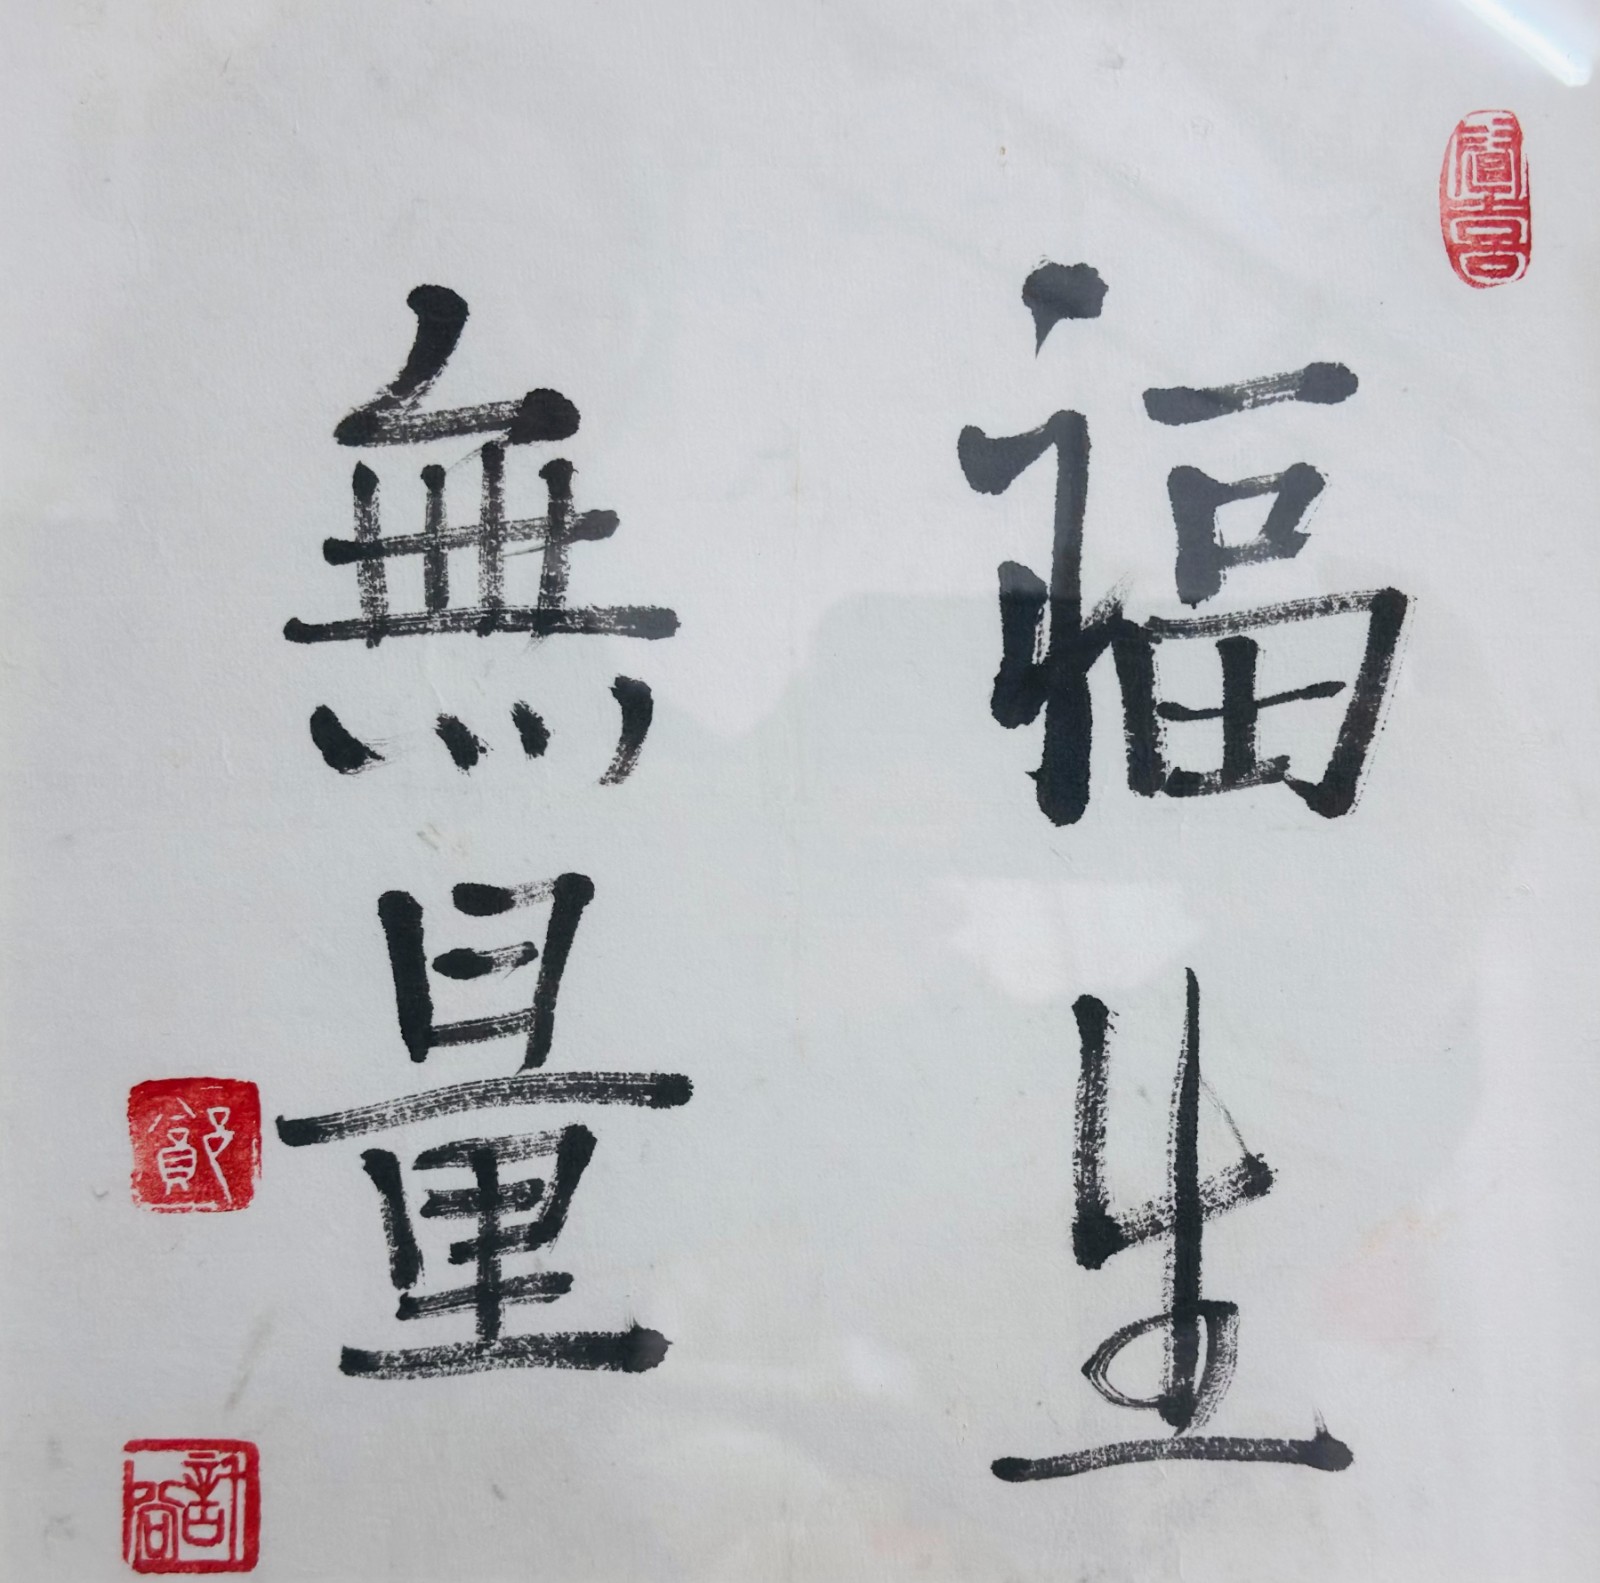 福生
無量